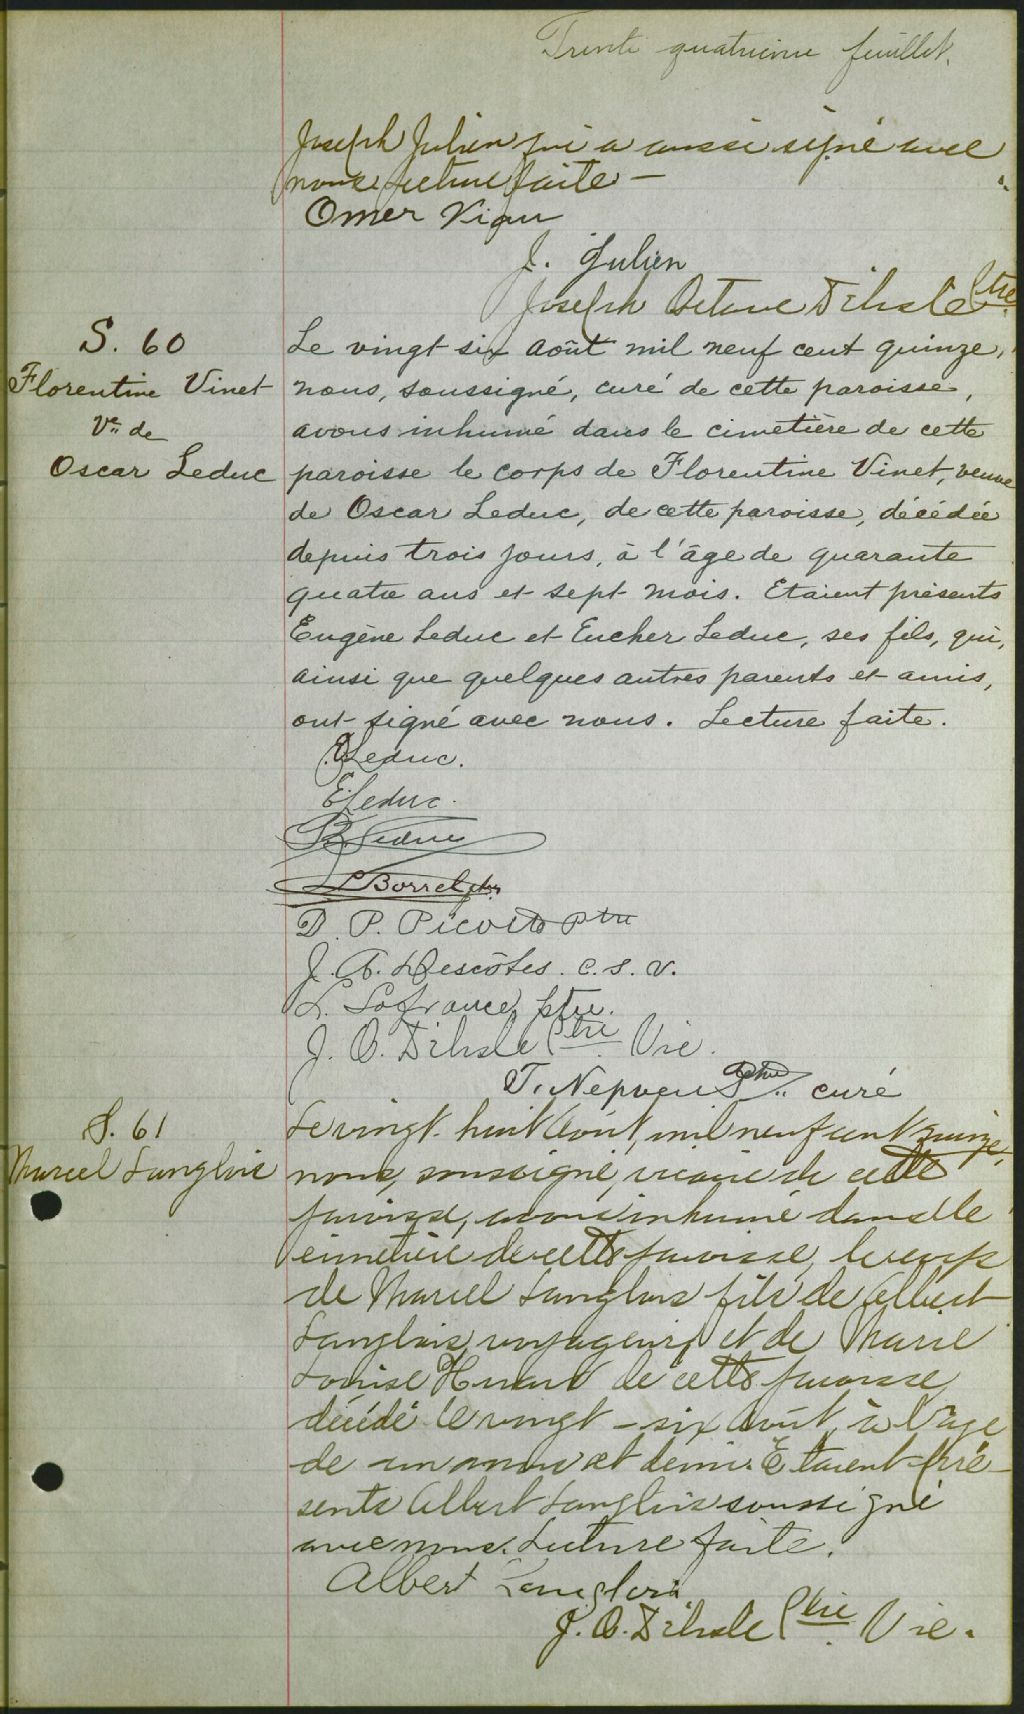 Trente quatrième feuillet.
Joseph Julien qui a aussi signé avec
nous. Lecture faite —
Omer Viau
J. Julien
Joseph Octave Delisle Ptre
S. 60
Florentine Vinet
Ve de
Oscar Leduc
Le vingt six août mil neuf cent quinze,
nous, soussigné, curé de cette paroisse,
avons inhumé dans le cimetière de cette
paroisse le corps de Florentine Vinet, veuve
de Oscar Leduc, de cette paroisse, décédée
depuis trois jours, à l'âge de quarante
quatre ans et sept mois. Etaient présents
Eugène Leduc et Eucher Leduc, ses fils, qui,
ainsi que quelques autres parents et amis,
ont signé avec nous. Lecture faite.
E Leduc.
E Leduc.
Leduc
L Borrel ptre
D. P. Picotte ptre
J. A. Descôtes. c.s.v.
L. Lafrance, ptre.
J. O. Delisle Ptre Vic.
T. Nepveu Ptre curé
S. 61
Marcel Langlois
Le vingt-huit Août, mil neuf cent quinze,
nous, soussigné, vicaire de cette
paroisse, avons inhumé dans le
cimetière de cette paroisse, le corps
de Marcel Langlois fils de Albert
Langlois, voyageur, et de Marie
Louise de cette paroisse,
décédé le vingt-six Août, à l'âge
de un mois et demi. Etaient pré-
sents Albert Langlois soussigné
avec nous. Lecture faite.
Albert Langlois
J. O. Delisle Ptre Vic.